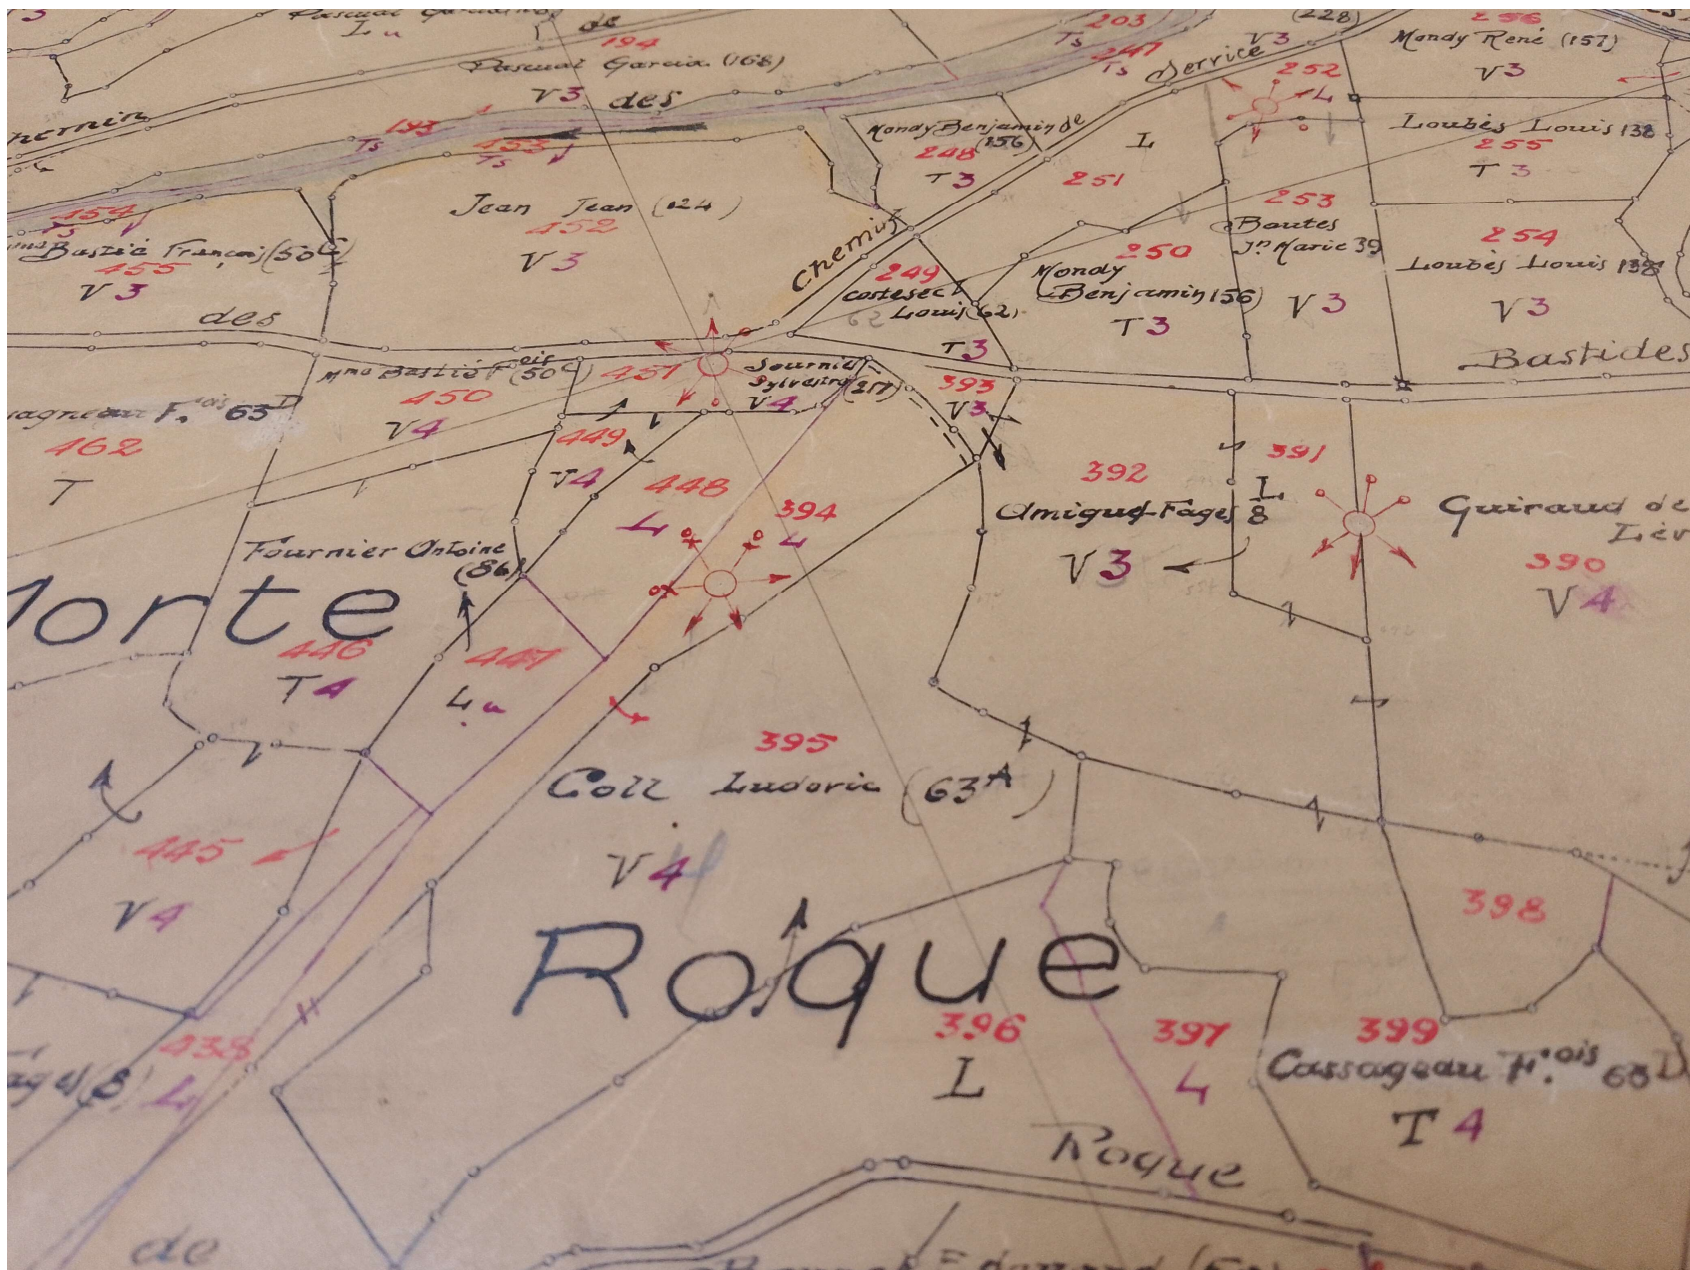 de
L a
194
Pascual Garcia (168)
V3
des
203
Ts
247
Ts
(228)
V3
Service
256
Mondy René (157)
V3
252
L
193
Ts
453
Ts
Mondy Benjamin de
(156)
248
T3
L
251
Loubès Louis 138
255
T 3
454
Ts
Bastié François (50 C)
455
V3
Jean Jean (124)
452
V3
Chemin
253
Boutes
Jn Marie 39
V3
254
Loubès Louis 138
V3
250
Mondy
Benjamin 156)
T3
249
Costesec
62 Louis (62)
T3
des
Bastides
Mme Bastié Fois (50 C)
450
V4
451
Sournié
Sylvestre (217)
V4
393
V3
F.ois 63 D
462
T
449
V4
448
L
394
L
392
Amigues-Fages
V3
391
L
8
Guiraud de
390
V4
Fournier Antoine
(86)
orte
446
T4
447
L a
395
Coll Ludovic (63 A)
V4
445
V4
Roque
398
396
L
397
L
399
Cassageau F.ois 63 D
T 4
438
(8) L
Roque
de